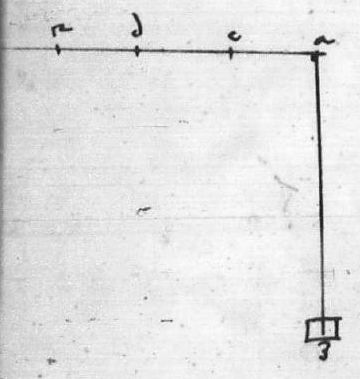 n d c a
3